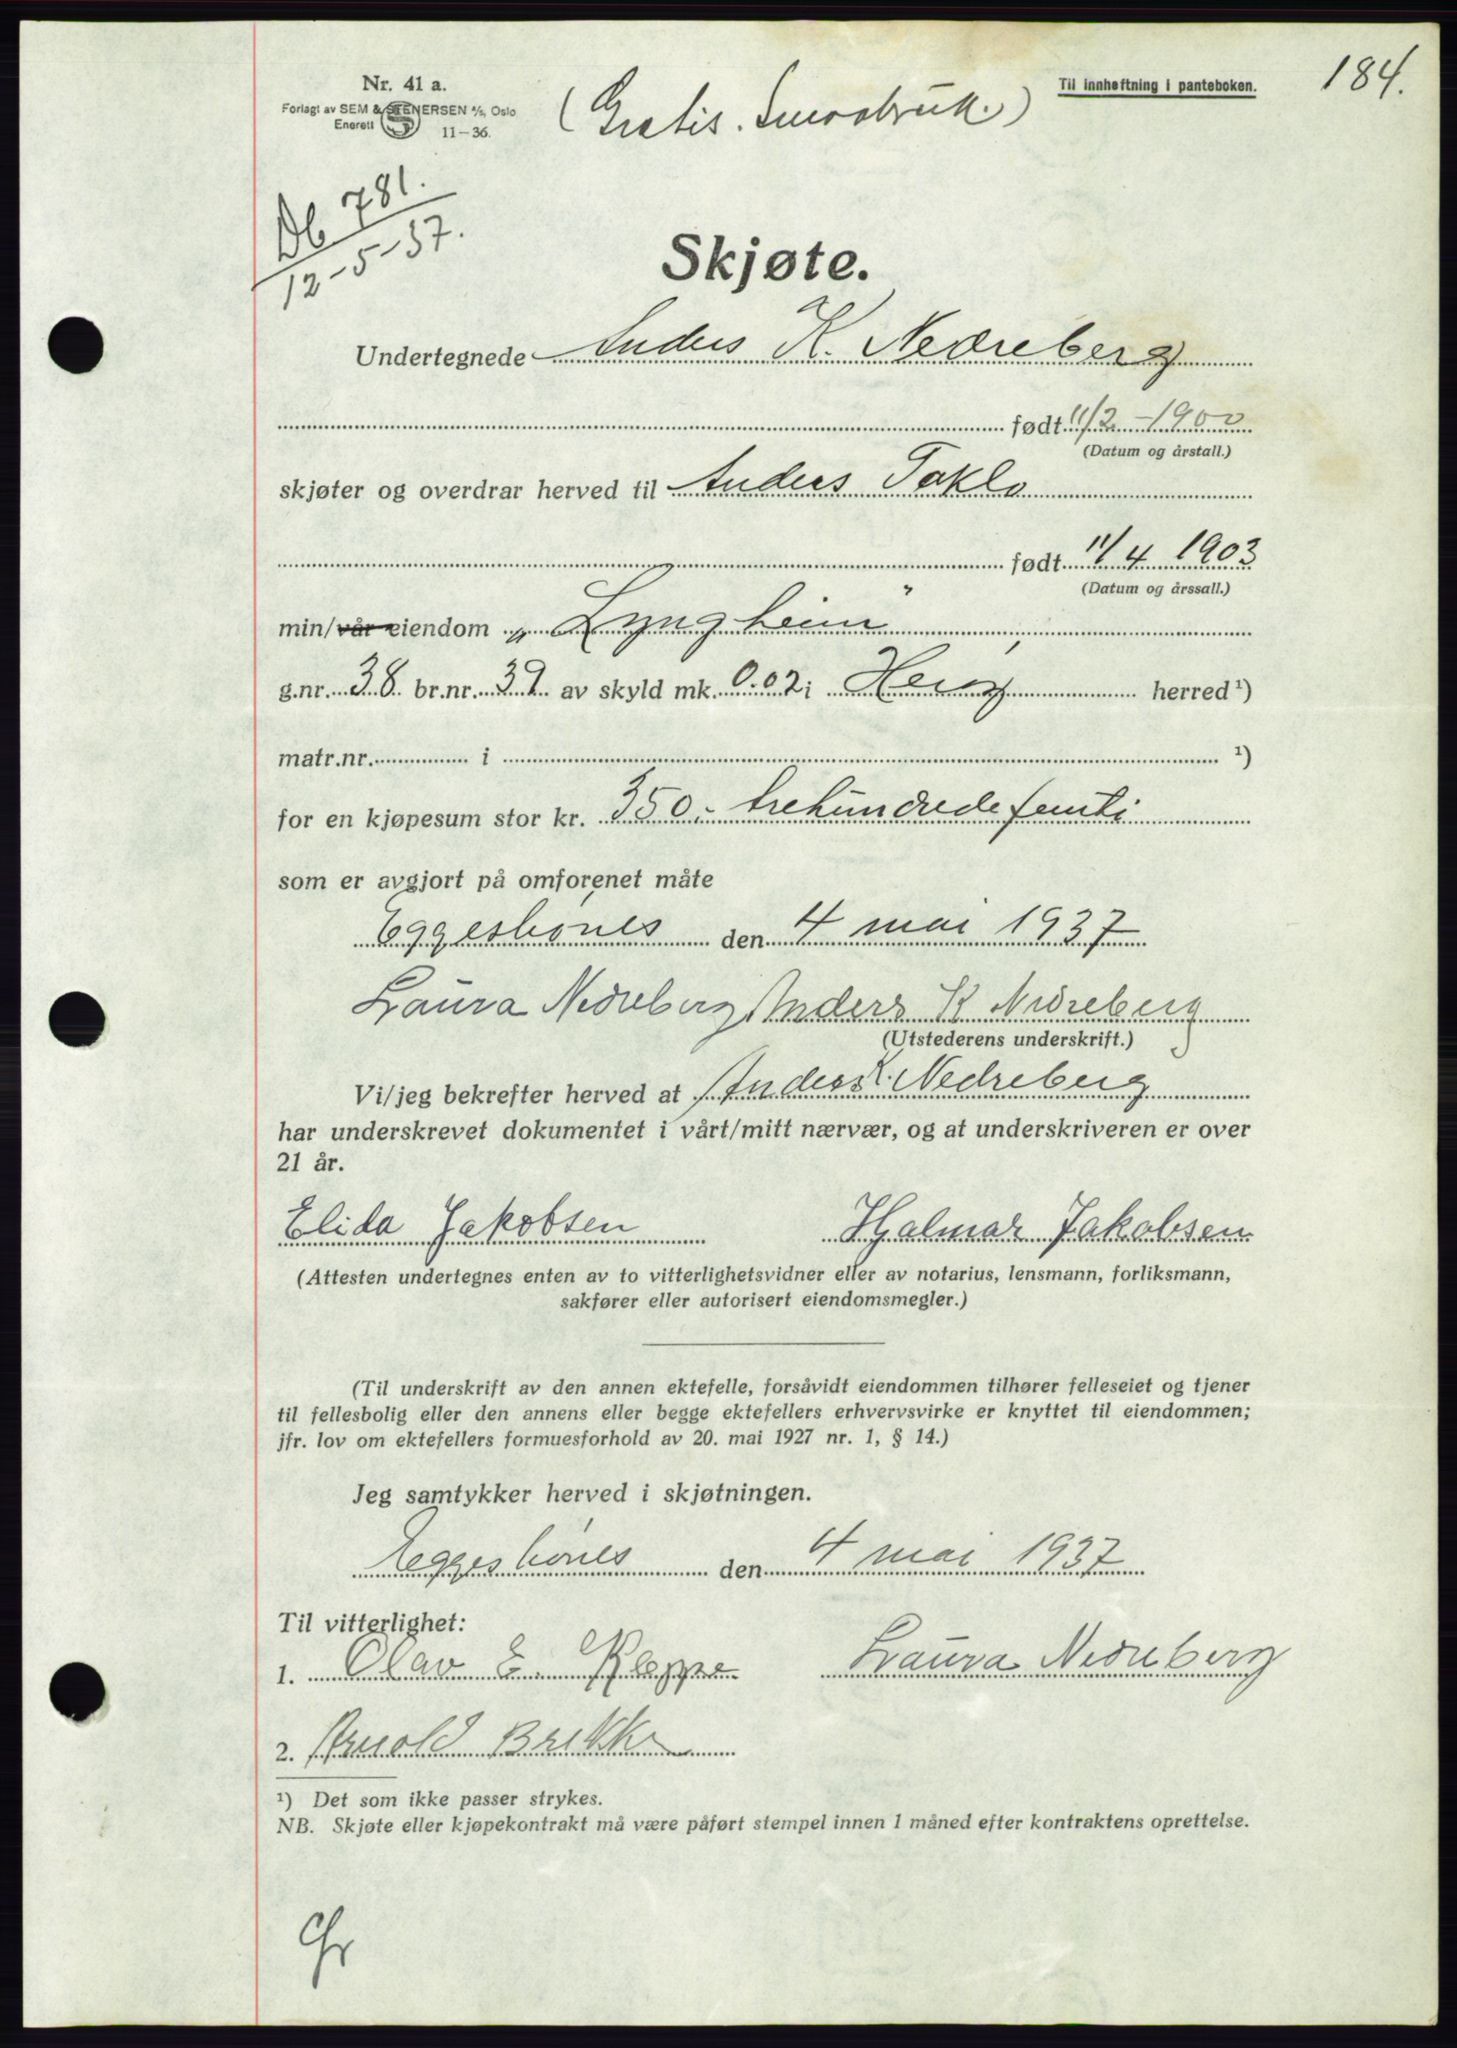 184.
Nr. 41 a.
Forlagt av SEM & STENERSEN A/S, Oslo
Enerett
11-36.
(Gratis. Småbruk.)
Til innheftning i panteboken.
Db 781.
12-5-37.
Skjøte.
Undertegnede Anders K. Nedreberg
født 11/2-1900
(Datum og årstall.)
skjøter og overdrar herved til Anders Taklo
født 11/4 1903
(Datum og årssall.)
min/vår eiendom „Lyngheim"
g.nr. 38 br.nr. 39 av skyld mk. 0.02 i Herøy herred ¹)
matr.nr. i ¹)
for en kjøpesum stor kr. 350.- trehundredefemti
som er avgjort på omforenet måte
Eggesbønes den 4 mai 1937
Laura Nedreberg Anders K Nedreberg
(Utstederens underskrift.)
Vi/jeg bekrefter herved at Anders K. Nedreberg
har underskrevet dokumentet i vårt/mitt nærvær, og at underskriveren er over
21 år.
Elida Jakobsen Hjalmar Jakobsen
(Attesten undertegnes enten av to vitterlighetsvidner eller av notarius, lensmann, forliksmann,
sakfører eller autorisert eiendomsmegler.)
(Til underskrift av den annen ektefelle, forsåvidt eiendommen tilhører felleseiet og tjener
til fellesbolig eller den annens eller begge ektefellers erhvervsvirke er knyttet til eiendommen;
jfr. lov om ektefellers formuesforhold av 20. mai 1927 nr. 1, § 14.)
Jeg samtykker herved i skjøtningen.
Eggesbønes den 4 mai 1937
Til vitterlighet:
1. Olav E. Kleppe Laura Nedreberg
2. Arnold Brekke
¹) Det som ikke passer strykes.
NB. Skjøte eller kjøpekontrakt må være påført stempel innen 1 måned efter kontraktens oprettelse.